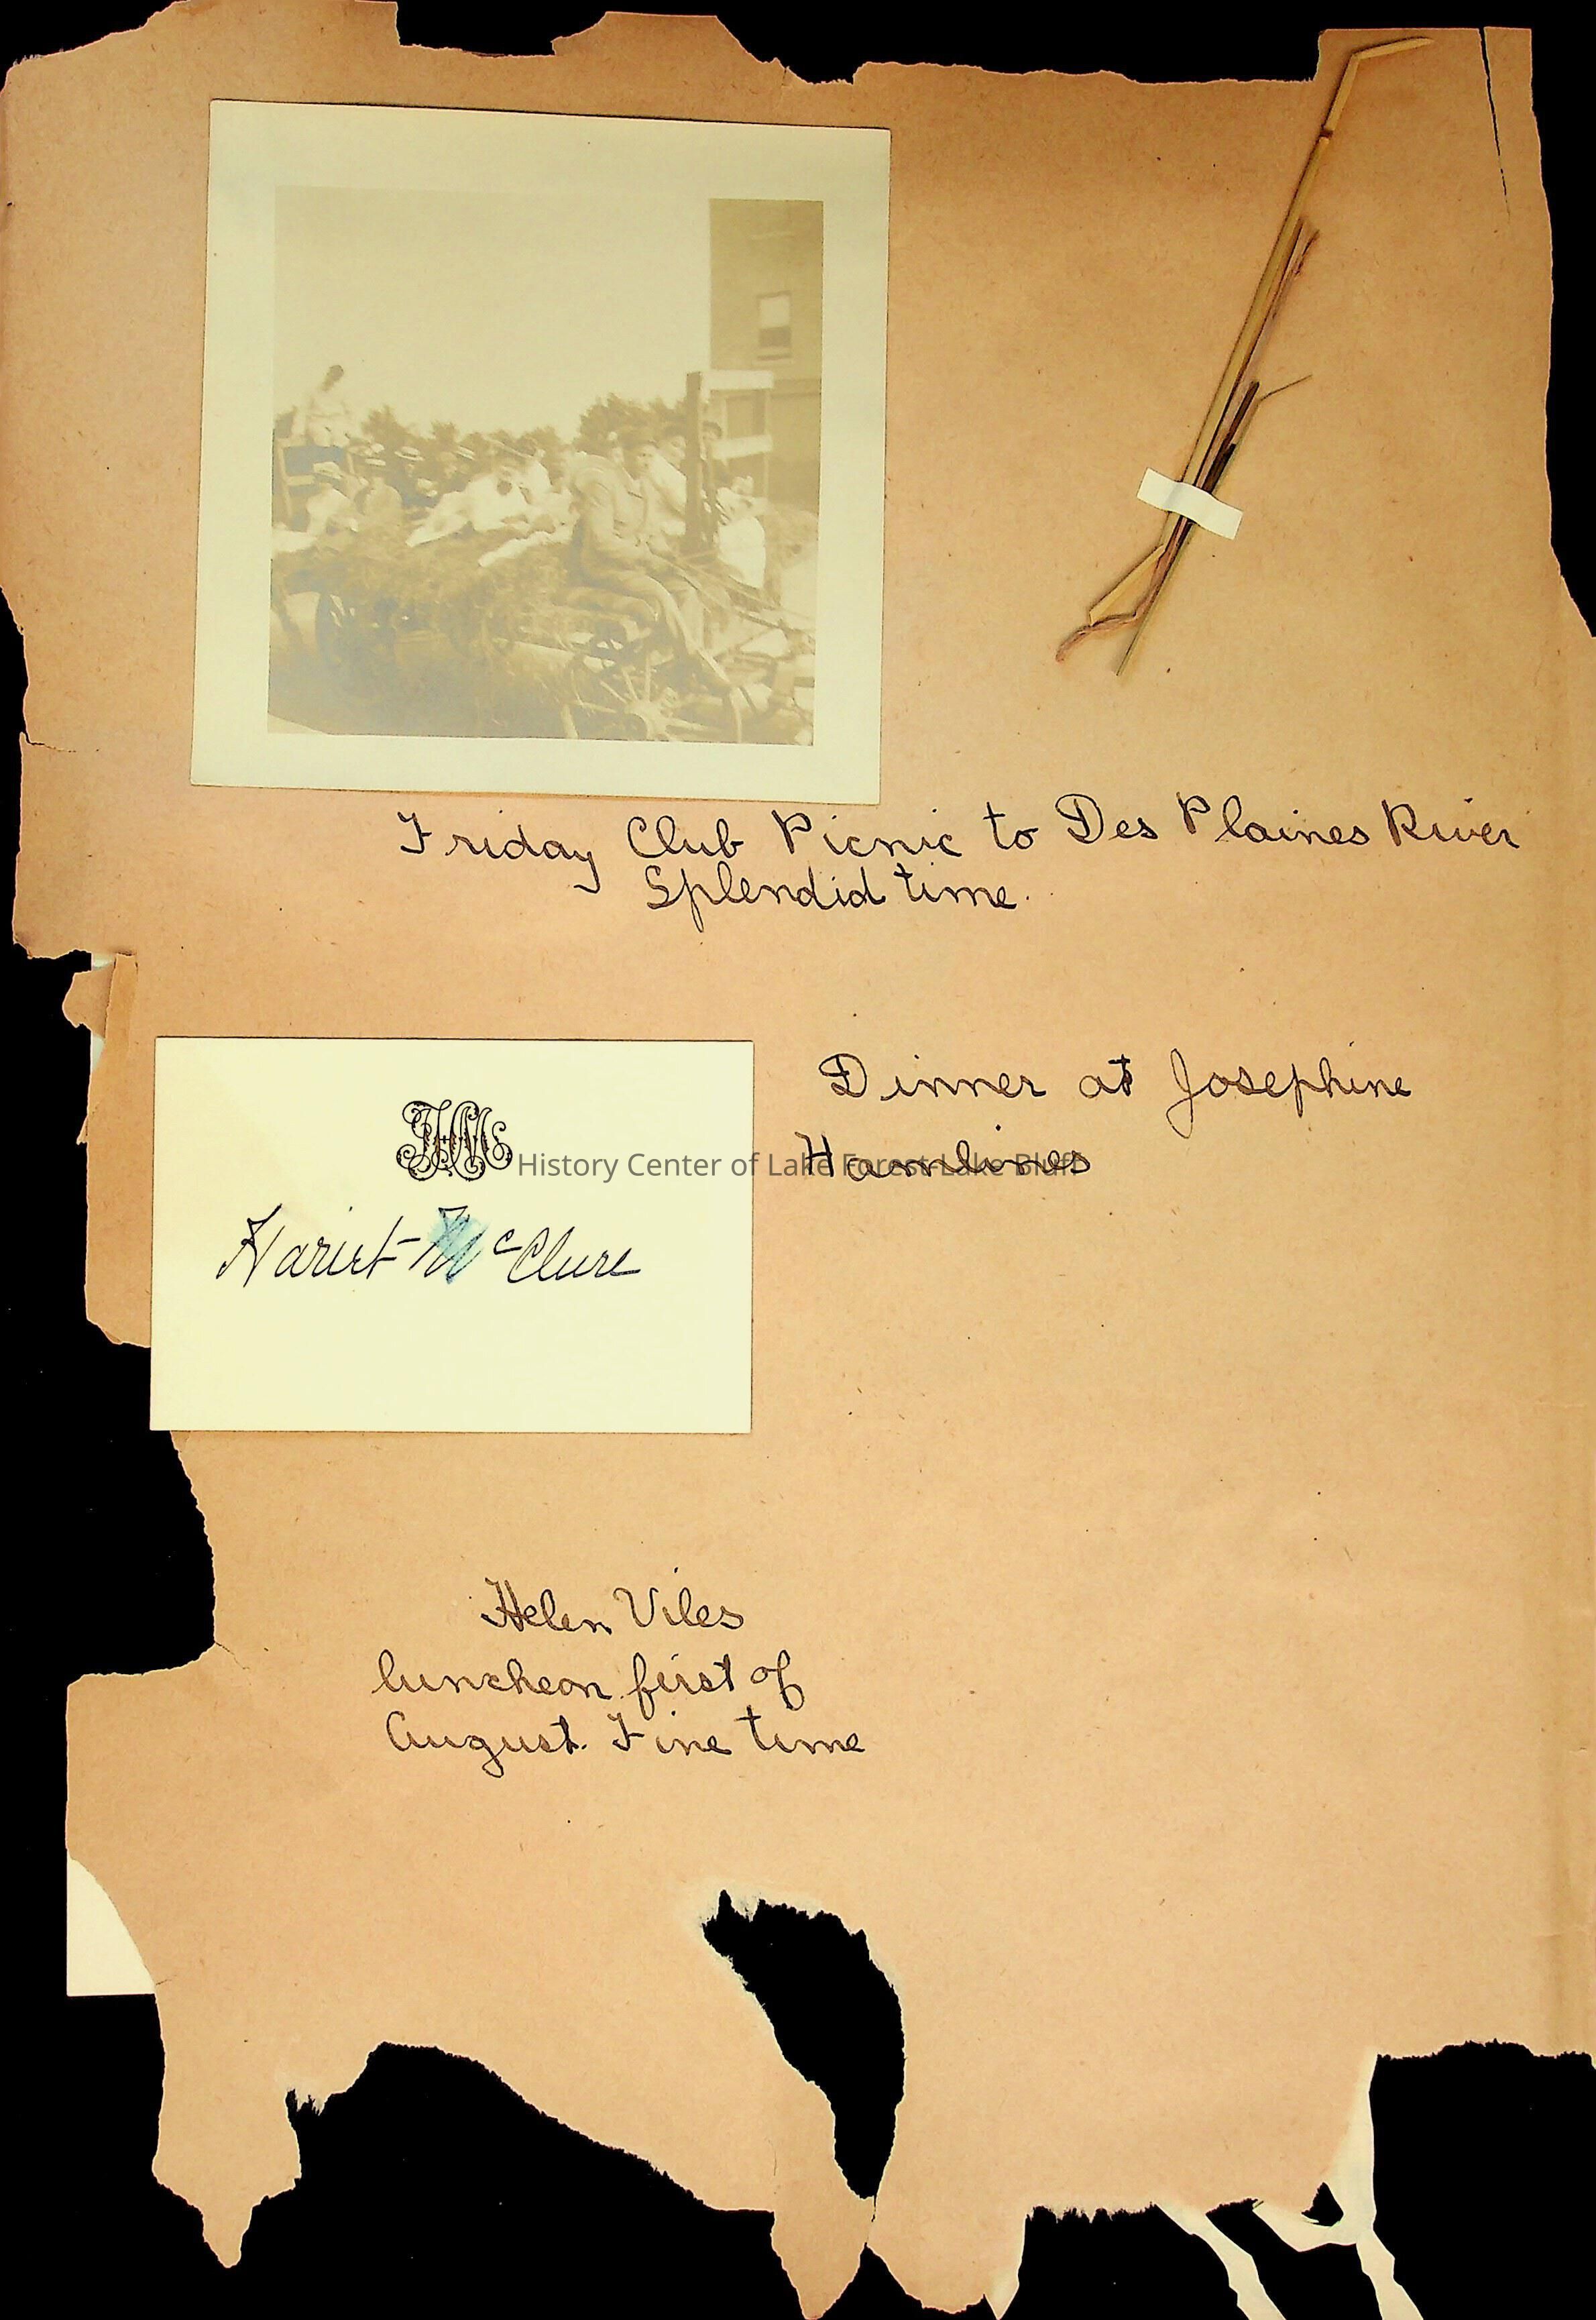 Friday Club Picnic to Des Plaines River
Splendid time.
Dinner at Josephine
Hamlines
History Center of Lake Forest-Lake Bluff
Hariet McClure
Helen Viles
luncheon first of
August. Fine time